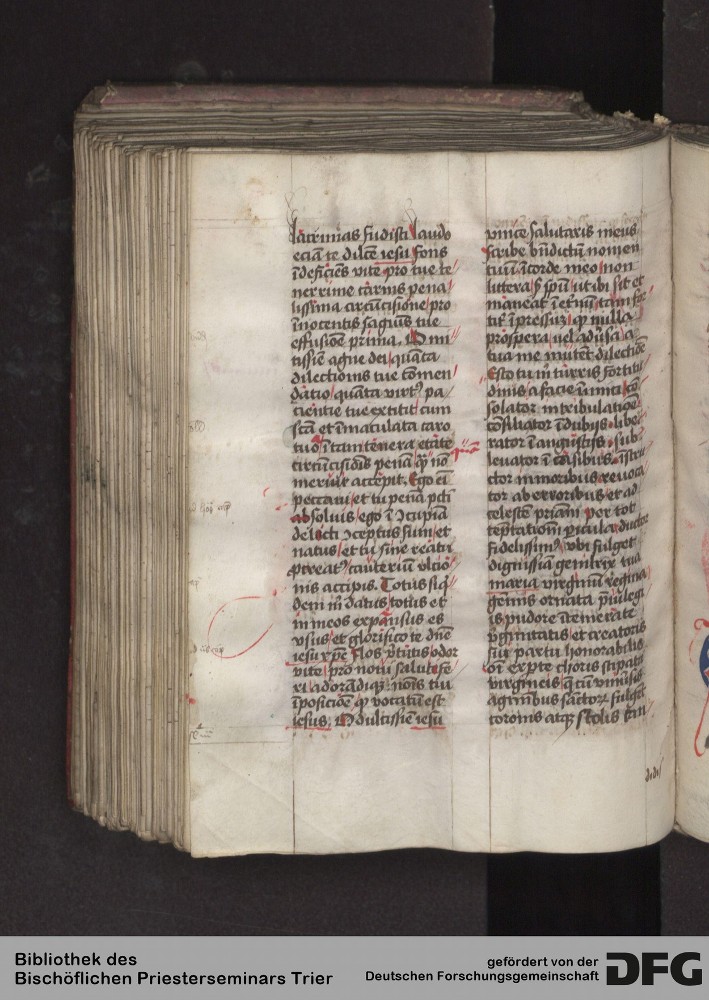 lacrimas fudisti laudo
eciā te dulce iesu fons
īdeficiēs vite pro tue te
nerrime carnis pena
lissima circūcisione pro
īnocentis sāguīs tue
effusiōe prima. O mi
tissiē agne dei quāta
dilectionis tue cōmen
datio quāta virtꝰ pa
ciencie tue extitit cum
scā et īmaculata caro
tuo ī tam tenera etate
circūcisiōis penā quā nō
meruit accepit. Ego ei
peccaui et tu penā pcti
absoluis ego ī ꝯcupia
delicti ꝯceptus sum et
natus et tu sine reatu
ꝓcreatꝰ cauteriū vlcio
nis accipis. Totus siq
dem m datus totus et
in meos expansus es
vsus et glorifico te dn̄e
iesu xp̄e flos v̄tutis odor
vite pro notū salutife
ri adorādiqꝫ noīs tui
īposiciōe quo vocatū est
iesus. O dulcissiē iesu
vnice salutaris meus
scribe bn̄dictū nomen
tuū ī corde meo non
littera sꝫ spū vt ibi sit et
maneat ī et̄nū tam for
tit̄ īpressū qꝫ nulla
prospera vel aduersa a
tua me mutet dilectiōe
Esto tu m turris fortitu
dinis a facie inimici cō
solator in tribulatiōe
cōsiliator ī dubiis libe
rator ī angustiis sub
leuator ī casibus īstru
ctor in moribus reuoca
tor ab erroribus et ad
celestē priām per tot
tēptationū picula ductor
fidelissimꝰ vbi fulget
dignissīa genitrix tua
maria virginū regina
gemis ornata p̄uilegi
is pudore ītemerate
v̄ginitatis et creatoris
sui partu honorabilis
oī expte choris stipata
virgineis q̄ cū vniūsis
agminibus sāctorꝝ fulget
coronis atqꝫ stolis can
didis
Bibliothek des
Bischöflichen Priesterseminars Trier
gefördert von der
Deutschen Forschungsgemeinschaft
DFG